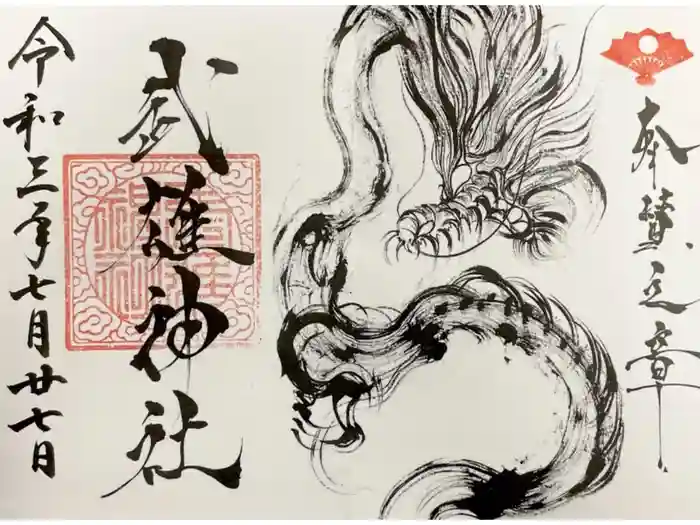 奉賛之章
武雄神社
令和三年七月廿七日